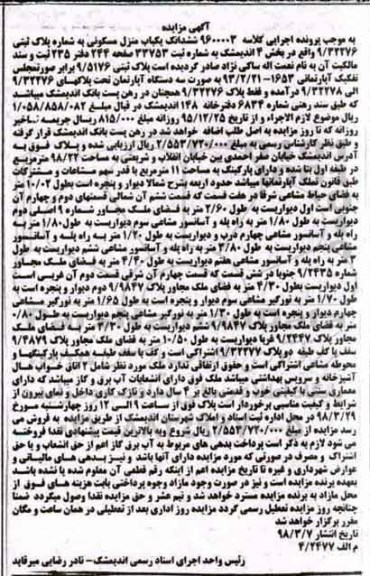 آگهی مزایده
به موجب پرونده اجرایی کلاسه ۹۶۰۰۰۰۳ ششدانگ یکباب منزل مسکونی به شماره پلاک ثبتی
۹/۳۲۲۷۶ واقع در بخش ۴ اندیمشک به شماره ثبت ۳۲۷۵۳ صفحه ۲۴۴ دفتر ۲۳۵ ثبت و سند
مالکیت آن به نام نعمت اله ساکی نژاد صادر گردیده است پلاک ثبتی ۹/۵۱۷۶ برابر صورتمجلس
تفکیک آپارتمانی ۱۶۵۳-۹۳/۲/۲۱ به صورت سه دستگاه آپارتمان تحت پلاکهای ۹/۳۲۲۷۶
الی ۹/۳۲۲۷۸ درآمده و فقط پلاک ۹/۳۲۲۷۶ همچنان در رهن بانک اندیمشک میباشد
که طبق سند رهنی شماره ۶۸۳۴ دفترخانه ۱۴۸ اندیمشک در قبال مبلغ ۱/۰۵۸/۸۵۸/۰۸۲
ریال موضوع لازم الاجراء و از تاریخ ۹۵/۱۲/۲۵ روزانه مبلغ ۸۱۵/۰۰۰ ریال جریمه تاخیر
روزانه که تا روز مزایده به اصل طلب اضافه خواهد شد در رهن بانک اندیمشک قرار گرفته
و طبق نظر کارشناس رسمی به مبلغ ۲/۵۵۳/۷۲۰/۰۰۰ ریال ارزیابی شده و پلاک فوق به
آدرس اندیمشک خیابان صفر احمدی بین خیابان انقلاب و شریعتی به مساحت ۹۸/۲۲ مترمربع
در طبقه اول بنا شده و دارای پارکینگ به مساحت ۱۱ مترمربع با قدر سهم مشاعات و مشترکات
طبق قانون تملک آپارتمانها میباشد حدود اربعه بشرح شمالا دیوار و پنجره است بطول ۱۰/۰۲ متر
به فضای حیاط مشاعی شرقا در هفت قسمت که قسمت ششم آن شمالی قسمتهای دوم و چهارم آن
جنوبی است اول دیواریست به طول ۲/۶۰ متر به فضای ملک مجاور شماره ۹ اصلی دوم
دیواریست به طول ۱/۸۰ متر به راه پله و آسانسور مشاعی سوم دیواریست به طول ۱/۸۰ متر به
راه پله و آسانسور مشاعی چهارم درب و دیواریست به طول ۱/۲۰ متر به راه پله و آسانسور
مشاعی پنجم دیواریست به طول ۳/۸۰ متر به راه پله و آسانسور مشاعی ششم دیواریست به طول
۳ متر به راه پله و آسانسور مشاعی هفتم دیواریست به طول ۴/۴۰ متر به فضای ملک مجاور
شماره ۹/۲۴۳۵ جنوبا در شش قسمت که قسمت چهارم آن شرقی قسمت دوم آن غربی است
اول دیواریست بطول ۴/۳۰ متر به فضای ملک مجاور پلاک ۹/۹۸۴۷ دوم دیوار و پنجره است به
طول ۱/۷۰ متر به نورگیر مشاعی سوم دیوار و پنجره است به طول ۱/۶۵ متر به نورگیر مشاعی
چهارم دیوار و پنجره است به طول ۱/۳۰ متر به نورگیر مشاعی پنجم دیواریست به طول ۰/۸۰
متر به فضای ملک مجاور پلاک ۹/۹۸۴۷ ششم دیواریست به طول ۳/۳۰ متر به فضای ملک
مجاور پلاک ۹/۲۴۴۷ غربا دیواریست به طول ۱۰/۵۰ متر به فضای ملک مجاور پلاک ۹/۴۸۷۹
سقف با کف طبقه دو پلاک ۹/۳۲۲۷۷ اشتراکی است و کف با سقف طبقه همکف پارکینگها و
محوطه مشاعی اشتراکی است و حقوق ارتفاقی ندارد ملک مورد نظر شامل ۲ اتاق خواب هال
آشپزخانه و سرویس بهداشتی میباشد ملک فوق دارای انشعابات آب برق و گاز میباشد که دارای
معماری سنتی با کیفیتی خوب و قدمتی بالغ بر ۴ سال دارد و نازک کاری داخل و نمای بیرون از
شرایط و کیفیت مناسبی برخوردار است پلاک فوق از ساعت ۹ الی ۱۲ روز چهارشنبه مورخ
۹۸/۳/۲۹ در محل اداره ثبت اسناد و املاک شهرستان اندیمشک از طریق مزایده به فروش می
رسد مزایده از مبلغ ۲/۵۵۳/۷۲۰/۰۰۰ ریال شروع و به بالاترین قیمت پیشنهادی نقدا فروخته
می شود لازم به ذکر است پرداخت بدهی های مربوط به آب برق گاز اعم از حق انشعاب و یا حق
اشتراک و مصرف در صورتی که مورد مزایده دارای آنها باشد و نیز بدهی های مالیاتی و
عوارض شهرداری و غیره تا تاریخ مزایده اعم از اینکه رقم قطعی آن معلوم شده یا نشده باشد
بعهده برنده مزایده است و نیز در صورت وجود مازاد وجوه پرداختی بابت هزینه های فوق از
محل مازاد به برنده مزایده مسترد خواهد شد و نیم عشر و حق مزایده نقدا وصول میگردد ضمنا
چنانچه روز مزایده تعطیل رسمی گردد مزایده روز اداری بعد از تعطیلی در همان ساعت و مکان
مقرر برگزار خواهد شد
تاریخ انتشار ۹۸/۳/۷
م الف ۴/۲۴۷۷
رئیس واحد اجرای اسناد رسمی اندیمشک- نادر رضایی میرقاید